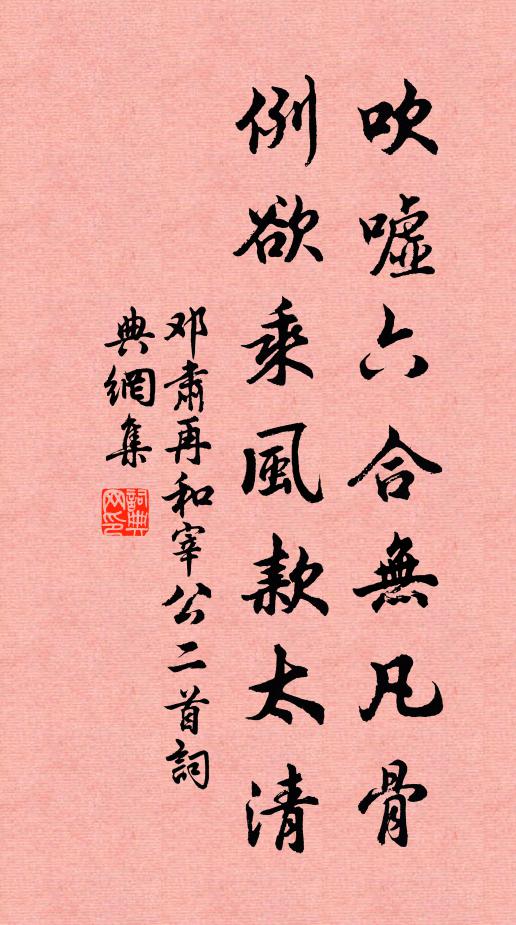 吹噓六合無凡骨
例欲乘風款太清
邓肅再和宰公二首詞
典網集
詞典网印